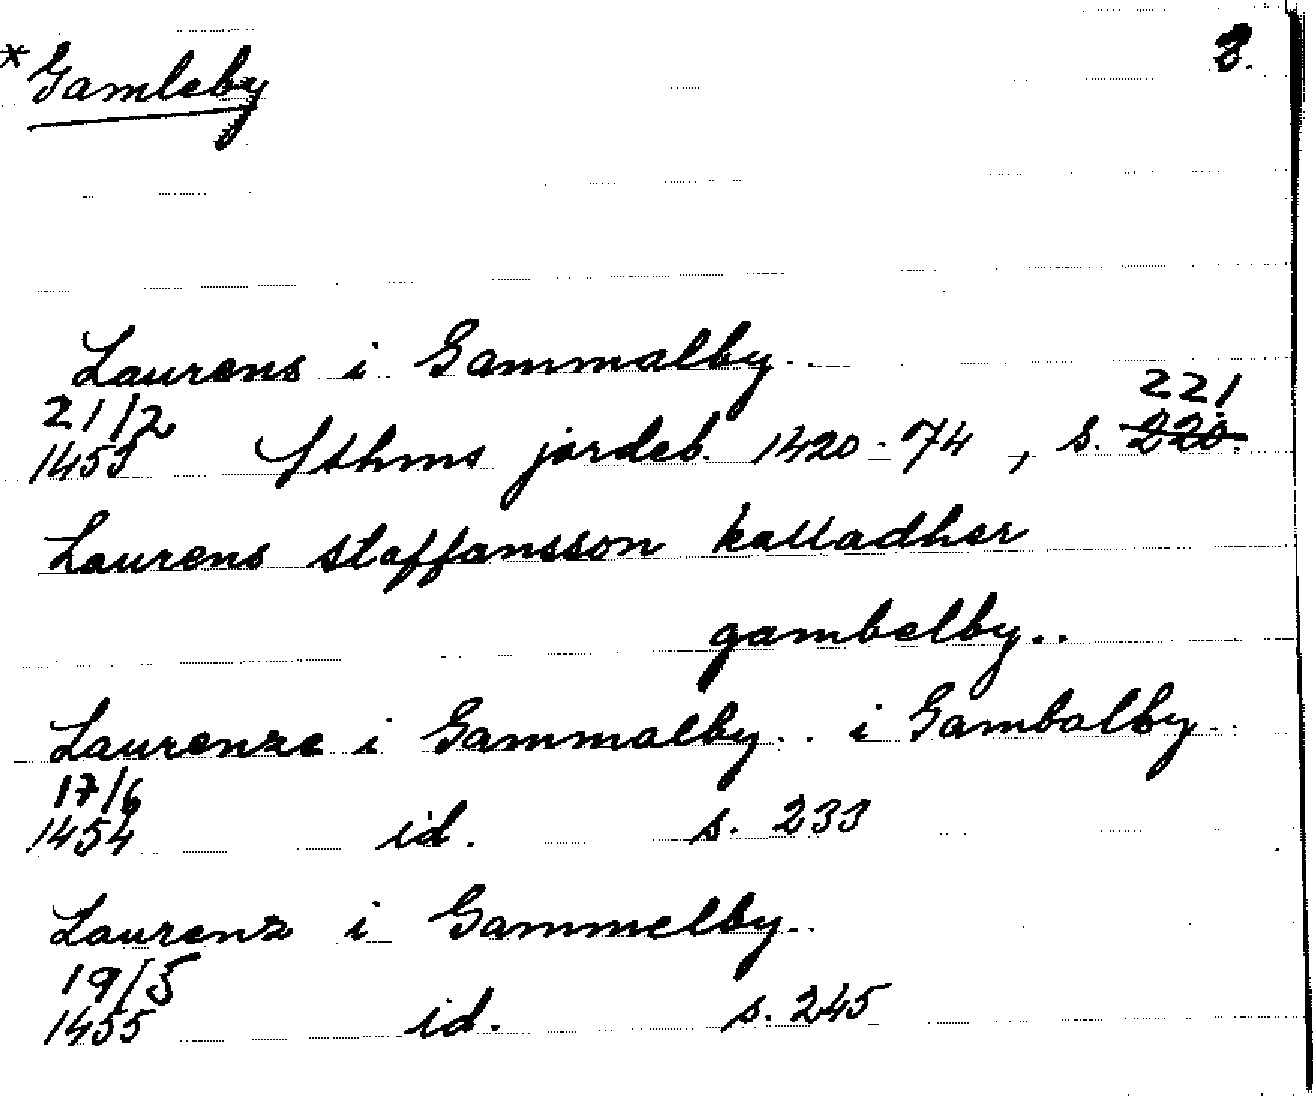 * Gamleby 3.
Laurens i Gammalby..
21/2 221
1453 Sthms jordeb. 1420-74, s. 220.
Laurens staffansson kalladher
gambelby..
Laurenze i Gammalby.. i Gambalby..
17/6
1454 id. s. 233
Laurenz i Gammelby..
19/5
1455 id. s. 245